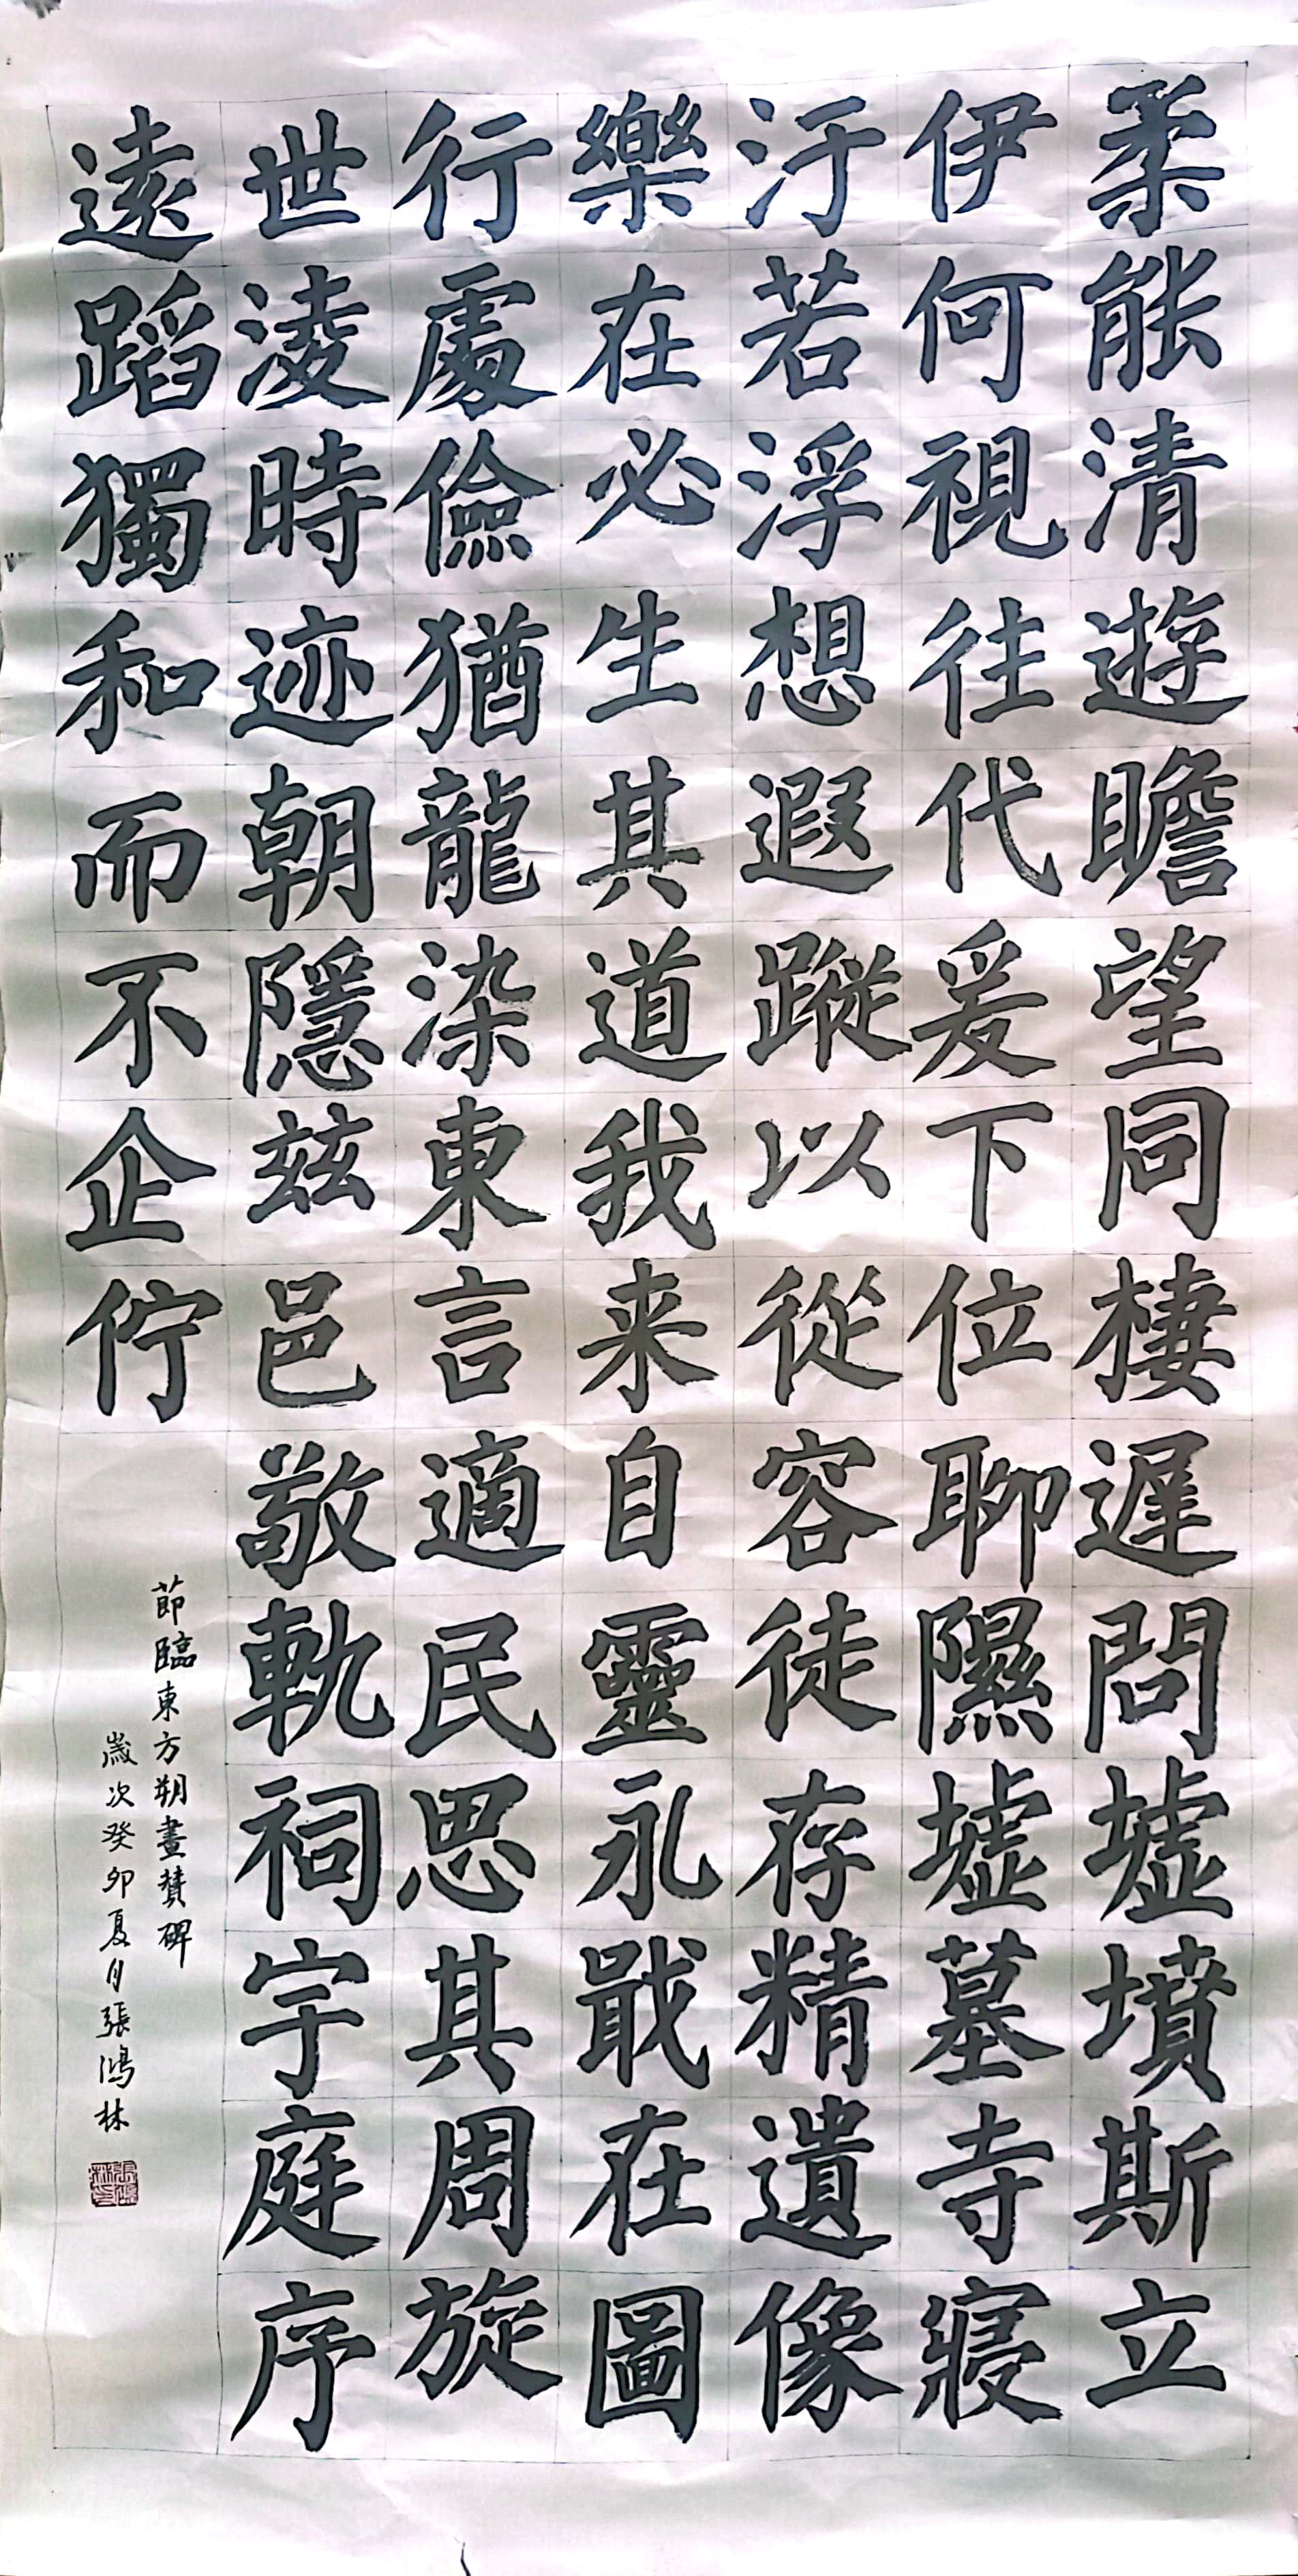 柔能清遊瞻望同棲遲問墟墳斯立
伊何視往代爰下位聊隰墟墓寺寢
汙若浮想遐蹤以從容徒存精遺像
樂在必生其道我来自靈永戢在圖
行處儉猶龍染東言適民思其周旋
世淩時迹朝隱玆邑敬軌祠宇庭序
遠蹈獨和而不企佇
節臨東方朔畫贊碑
歲次癸卯夏月張鴻林